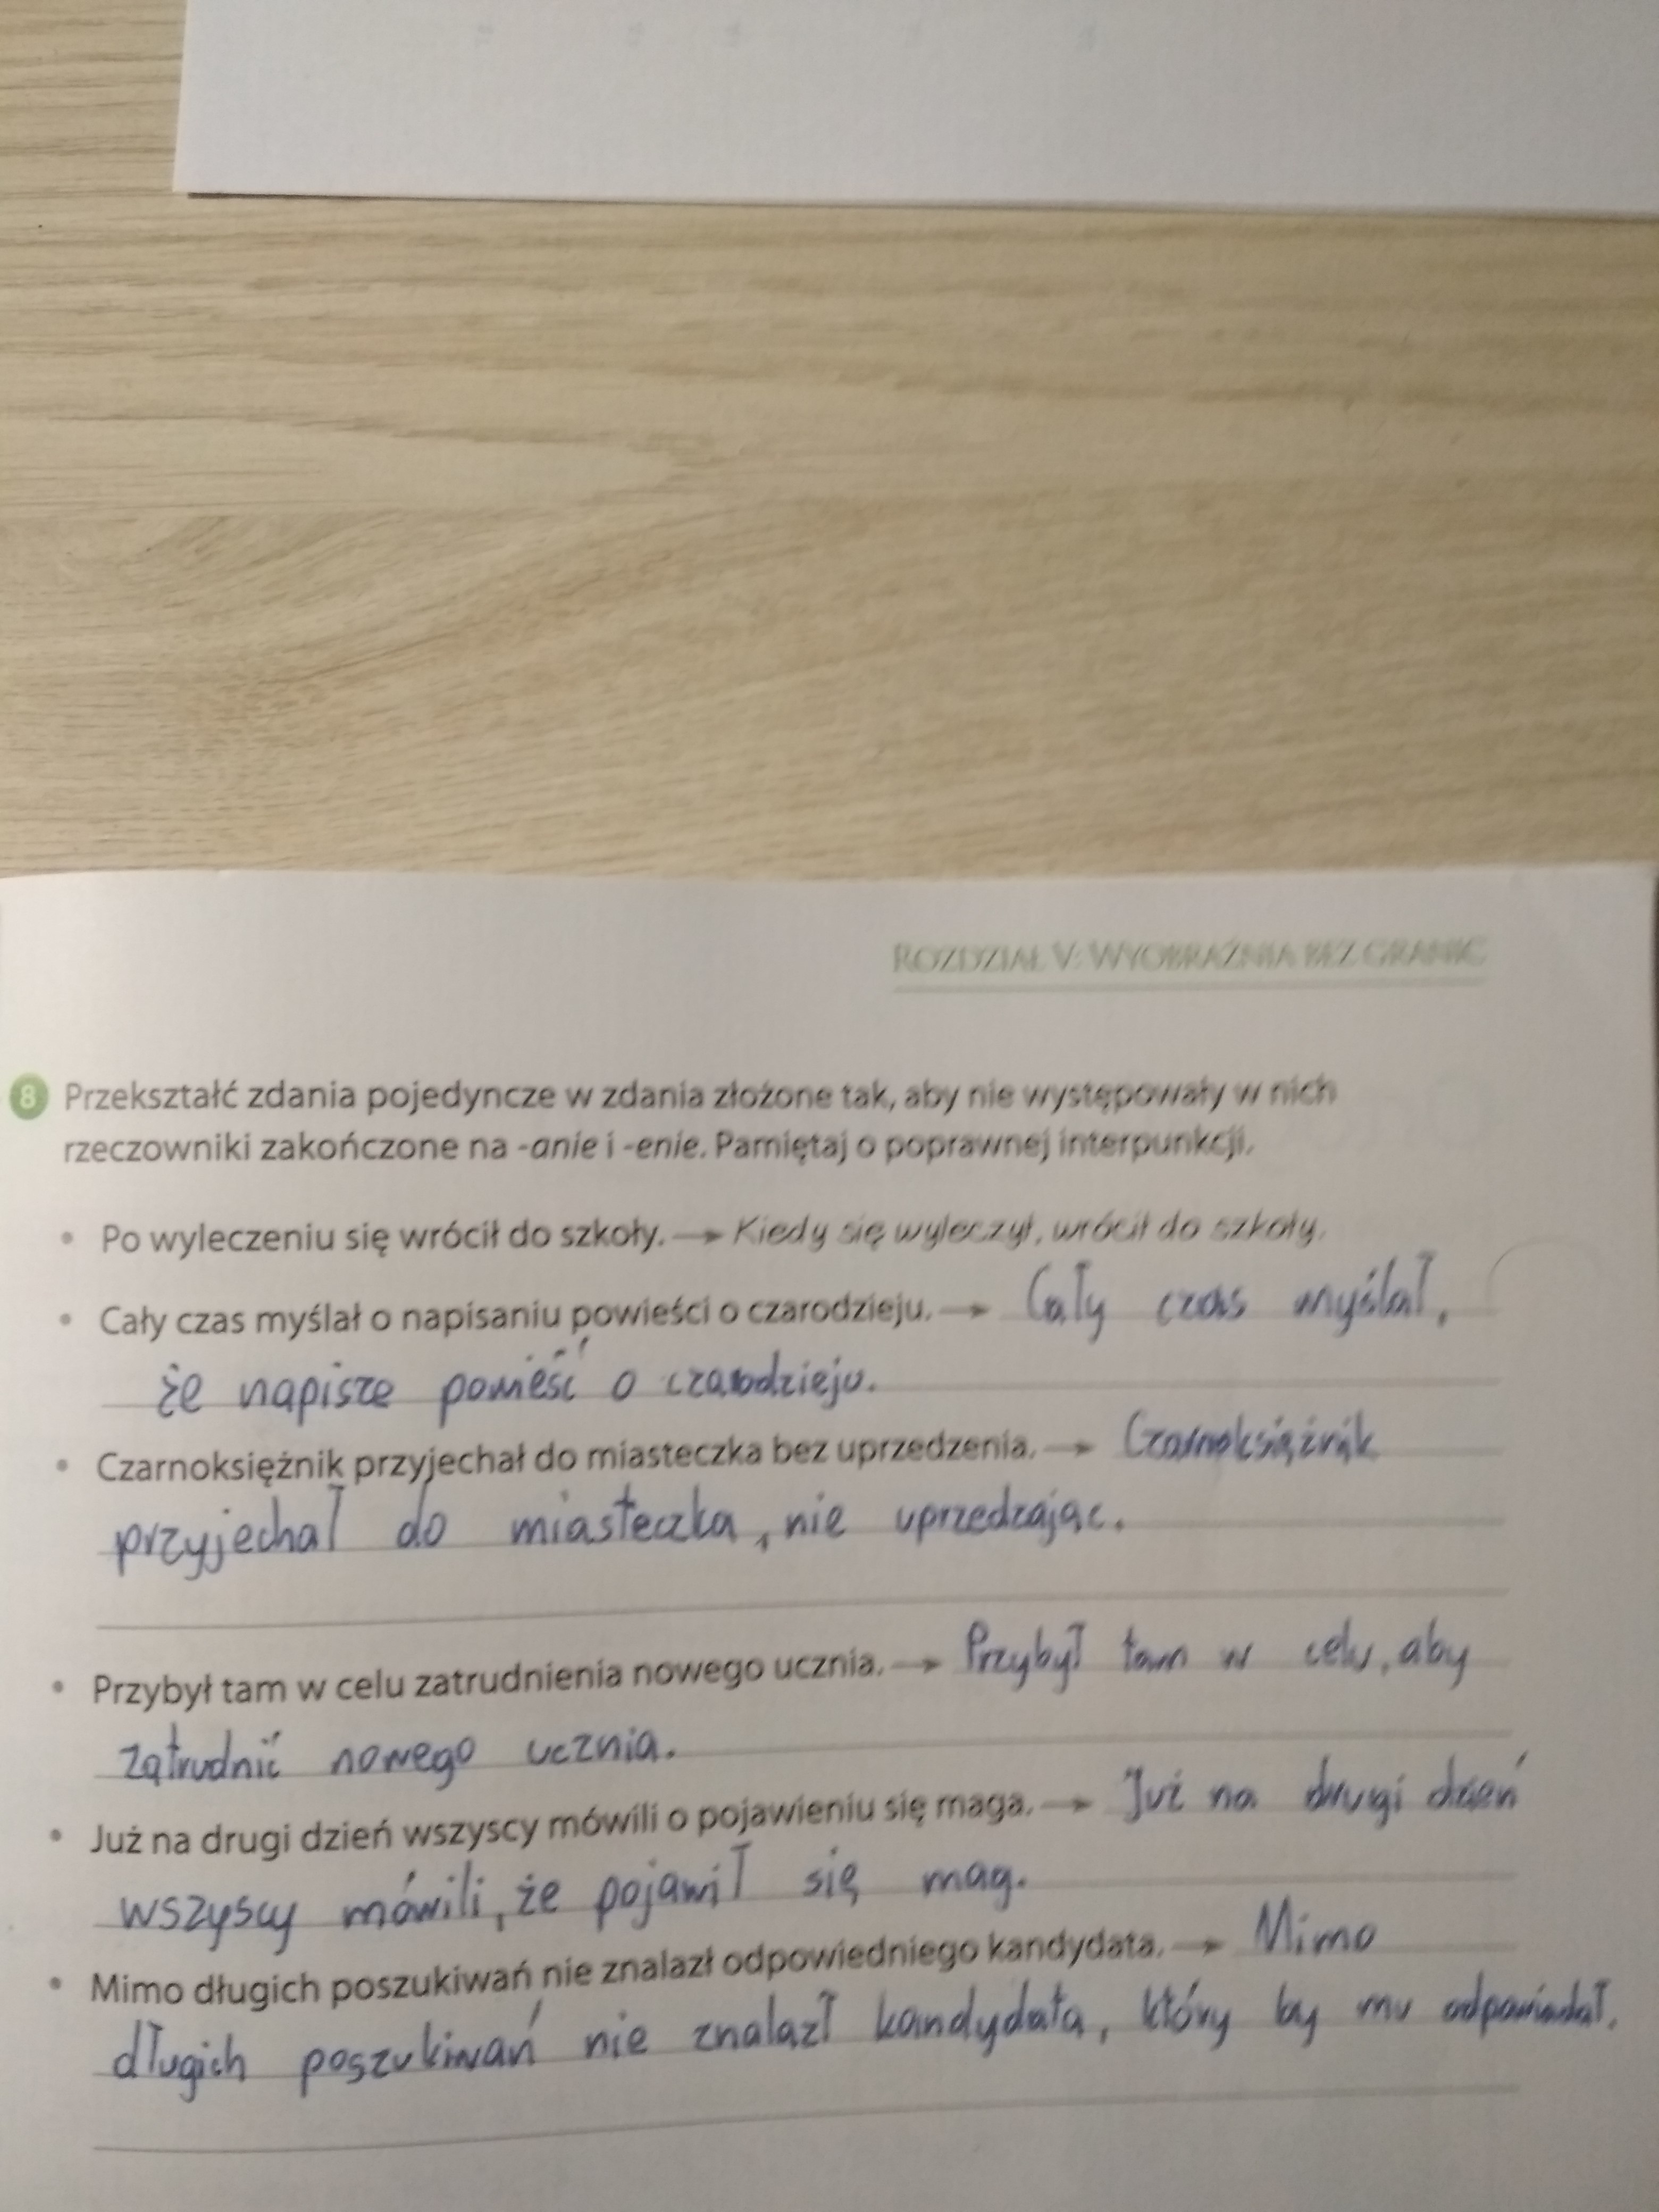 ROZDZIAŁ V: WYOBRAŹNIA BEZ GRANIC
8 Przekształć zdania pojedyncze w zdania złożone tak, aby nie występowały w nich
rzeczowniki zakończone na -anie i -enie. Pamiętaj o poprawnej interpunkcji.
• Po wyleczeniu się wrócił do szkoły. → Kiedy się wyleczył, wrócił do szkoły.
• Cały czas myślał o napisaniu powieści o czarodzieju. → Cały czas myślał,
że napisze powieść o czarodzieju.
• Czarnoksiężnik przyjechał do miasteczka bez uprzedzenia. → Czarnoksiążnik
przyjechał do miasteczka, nie uprzedzając.
• Przybył tam w celu zatrudnienia nowego ucznia. → Przybył tam w celu, aby
zatrudnić nowego ucznia.
• Już na drugi dzień wszyscy mówili o pojawieniu się maga. → Już na drugi dzień
wszyscy mówili, że pojawił się mag.
• Mimo długich poszukiwań nie znalazł odpowiedniego kandydata. → Mimo
długich poszukiwań nie znalazł kandydata, który by mu odpowiadał.